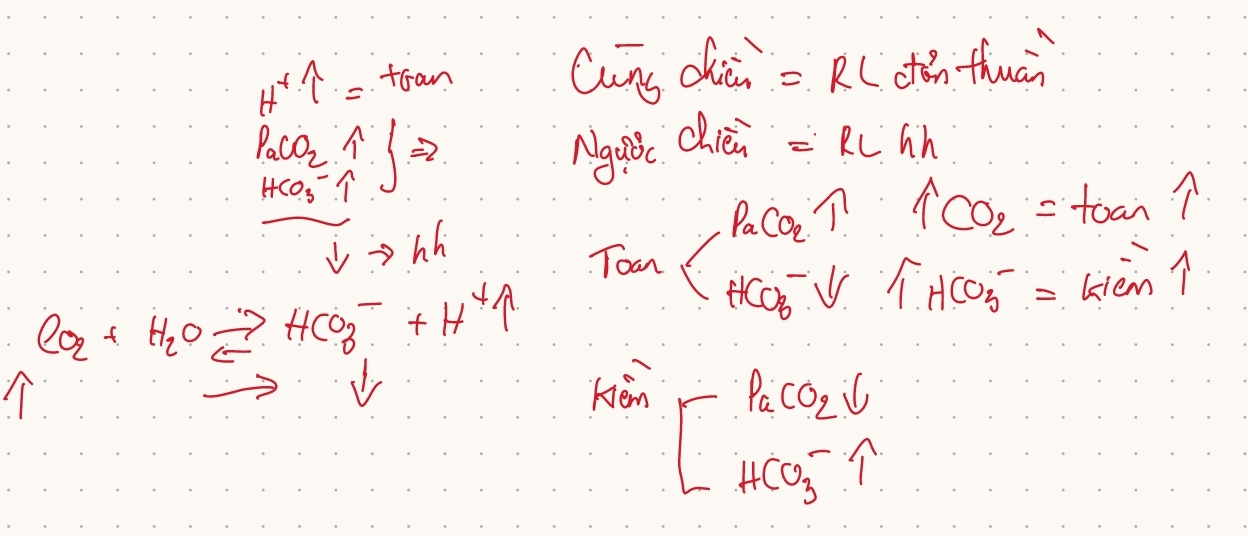 H⁺ ↑ = toan
PaCO₂ ↑ } ⇒
HCO₃⁻ ↑
↓ → hh
CO₂ + H₂O ⇌ HCO₃⁻ + H⁺ ↑
↑ → ↓
Cùng chiều = RL đơn thuần
Ngược chiều = RL hh
PaCO₂ ↑ ↑ CO₂ = toan ↑
Toan <
HCO₃⁻ ↓ ↑ HCO₃⁻ = kiềm ↑
Kiềm [ PaCO₂ ↓
HCO₃⁻ ↑